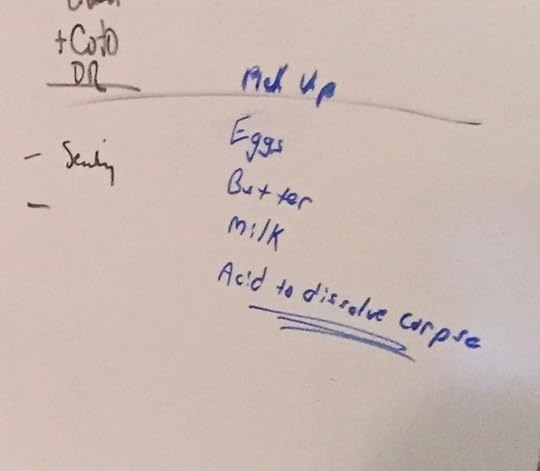 +Coto
DR
Pick Up
Eggs
Butter
Milk
Acid to dissolve corpse